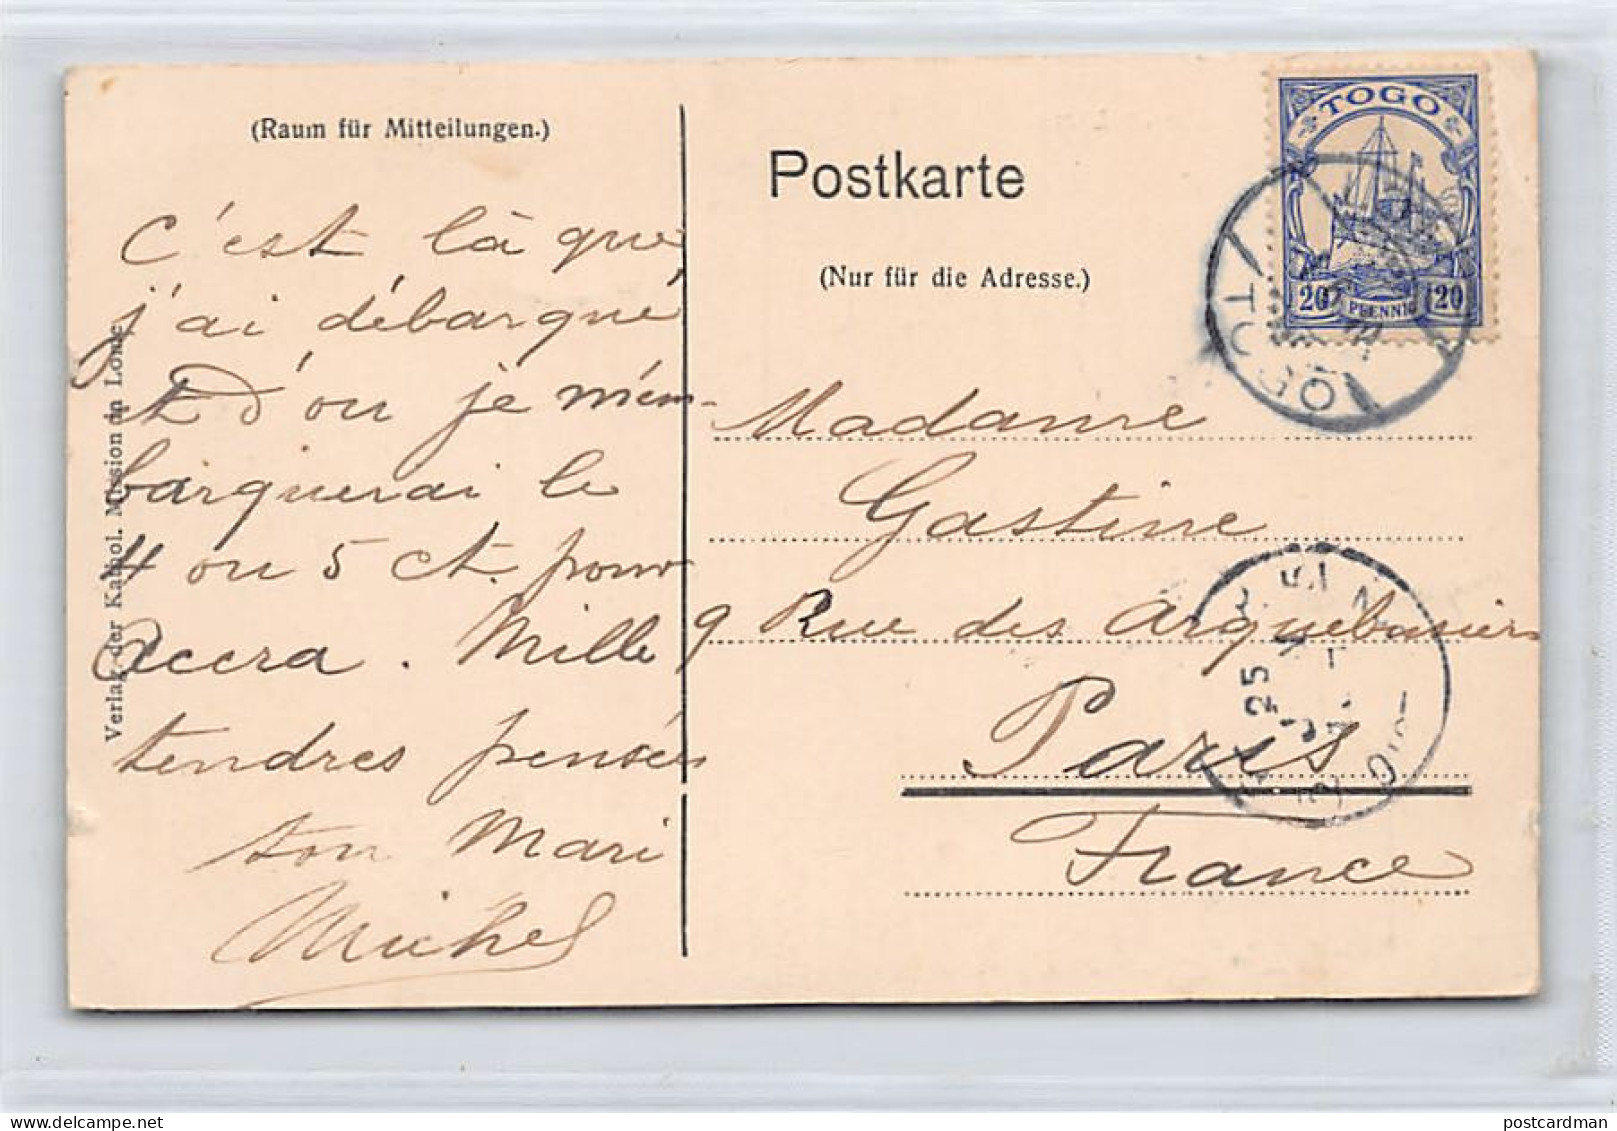 (Raum für Mitteilungen.)
C'est là que
j'ai débarqué
et d'où je m'em-
barquerai le
4 ou 5 ct. pour
Accra. Mille
tendres pensées
ton Mari
Michel
Verlag der Kathol. Mission in Lome
Postkarte
(Nur für die Adresse.)
TOGO
20 PFENNIG 20
Madame
Gastine
9 Rue des Arquebusiers
Paris
France
25
postcardman